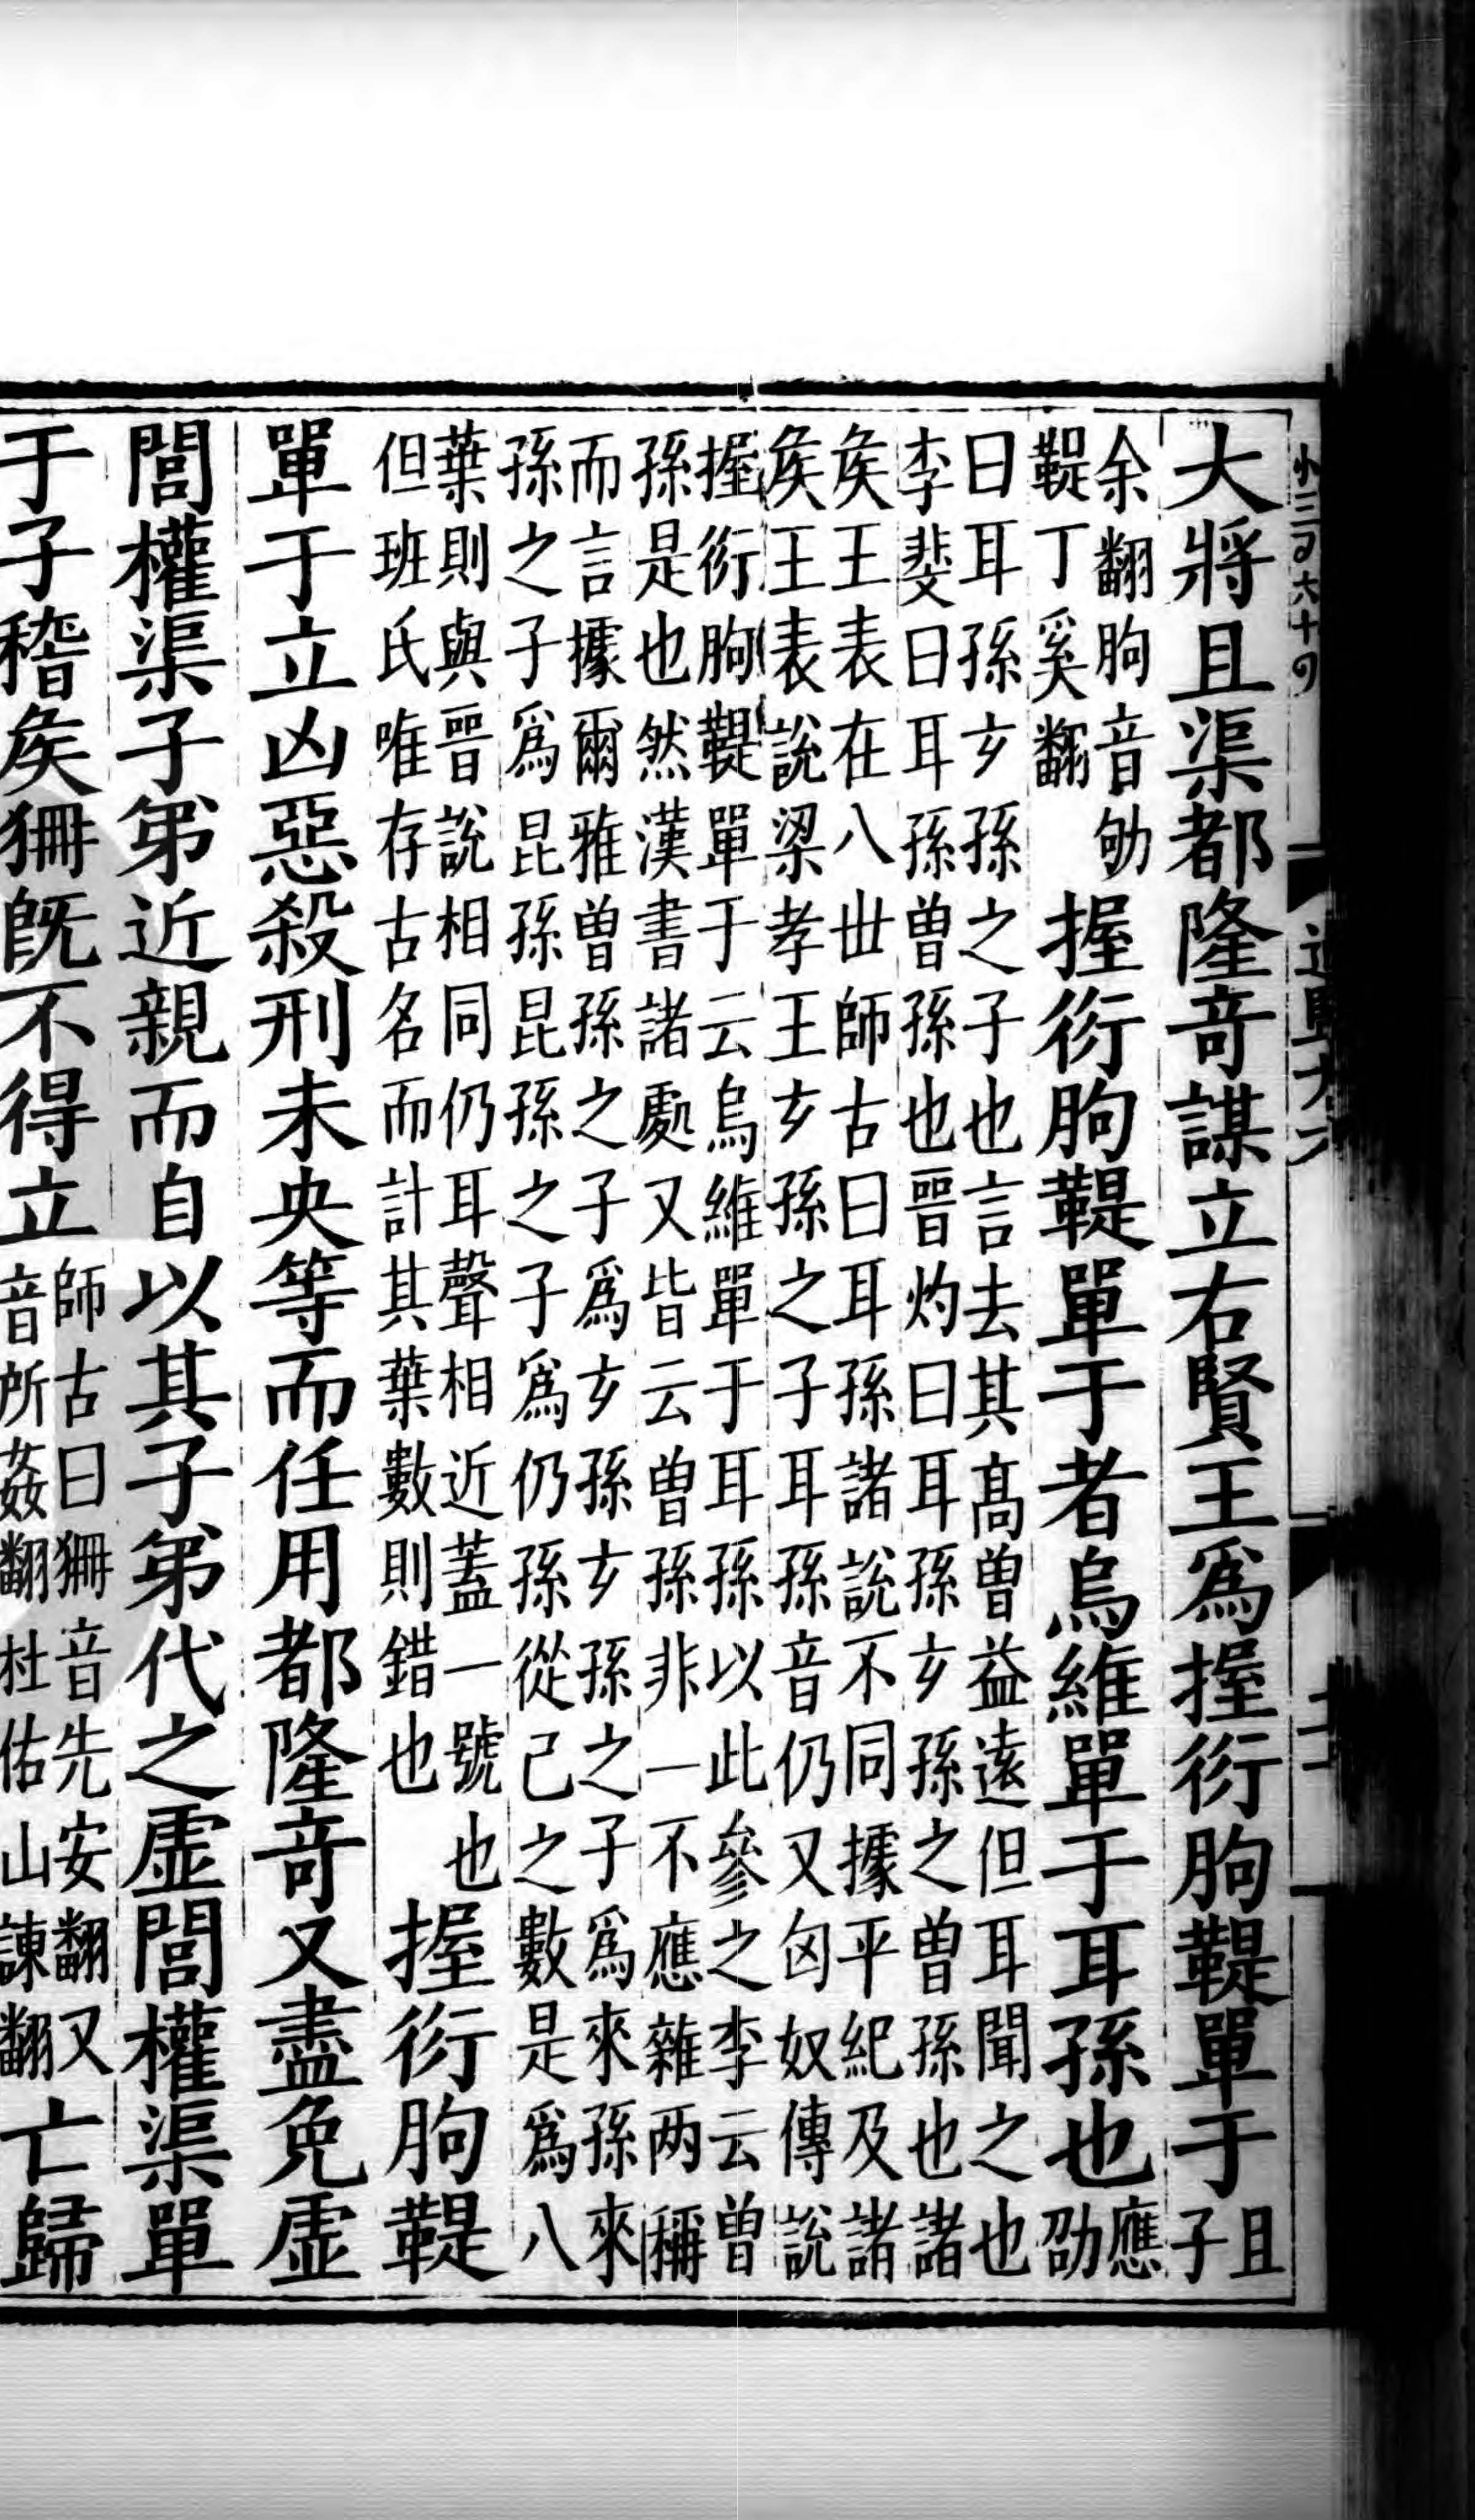 小三百六十四
大將且渠都隆竒謀立右賢王爲握衍朐鞮單于且
子
余翻朐音劬
鞮丁奚翻
握衍朐鞮單于者烏維單于耳孫也應
劭
曰耳孫玄孫之子也言去其髙曾益遠但耳聞之也
李斐曰耳孫曾孫也晉灼曰耳孫玄孫之曾孫也諸
矦王表在八世師古曰耳孫諸說不同據平紀及諸
矦王表說梁孝王玄孫之子耳孫音仍又匈奴傳說
握衍朐鞮單于云烏維單于耳孫以此參之李云曾
孫是也然漢書諸處又皆云曾孫非一不應雜兩稱
而言據爾雅曾孫之子爲玄孫玄孫之子爲來孫來
孫之子爲昆孫昆孫之子爲仍孫從己之數是爲八
葉則與晉說相同仍耳聲相近蓋一號也
但班氏唯存古名而計其葉數則錯也
握衍朐鞮
單于立凶惡殺刑未央等而任用都隆竒又盡免虛
閭權渠子弟近親而自以其子弟代之虛閭權渠單
于子稽矦狦旣不得立
師古曰狦音先安翻又
音所姦翻杜佑山諫翻
亡歸